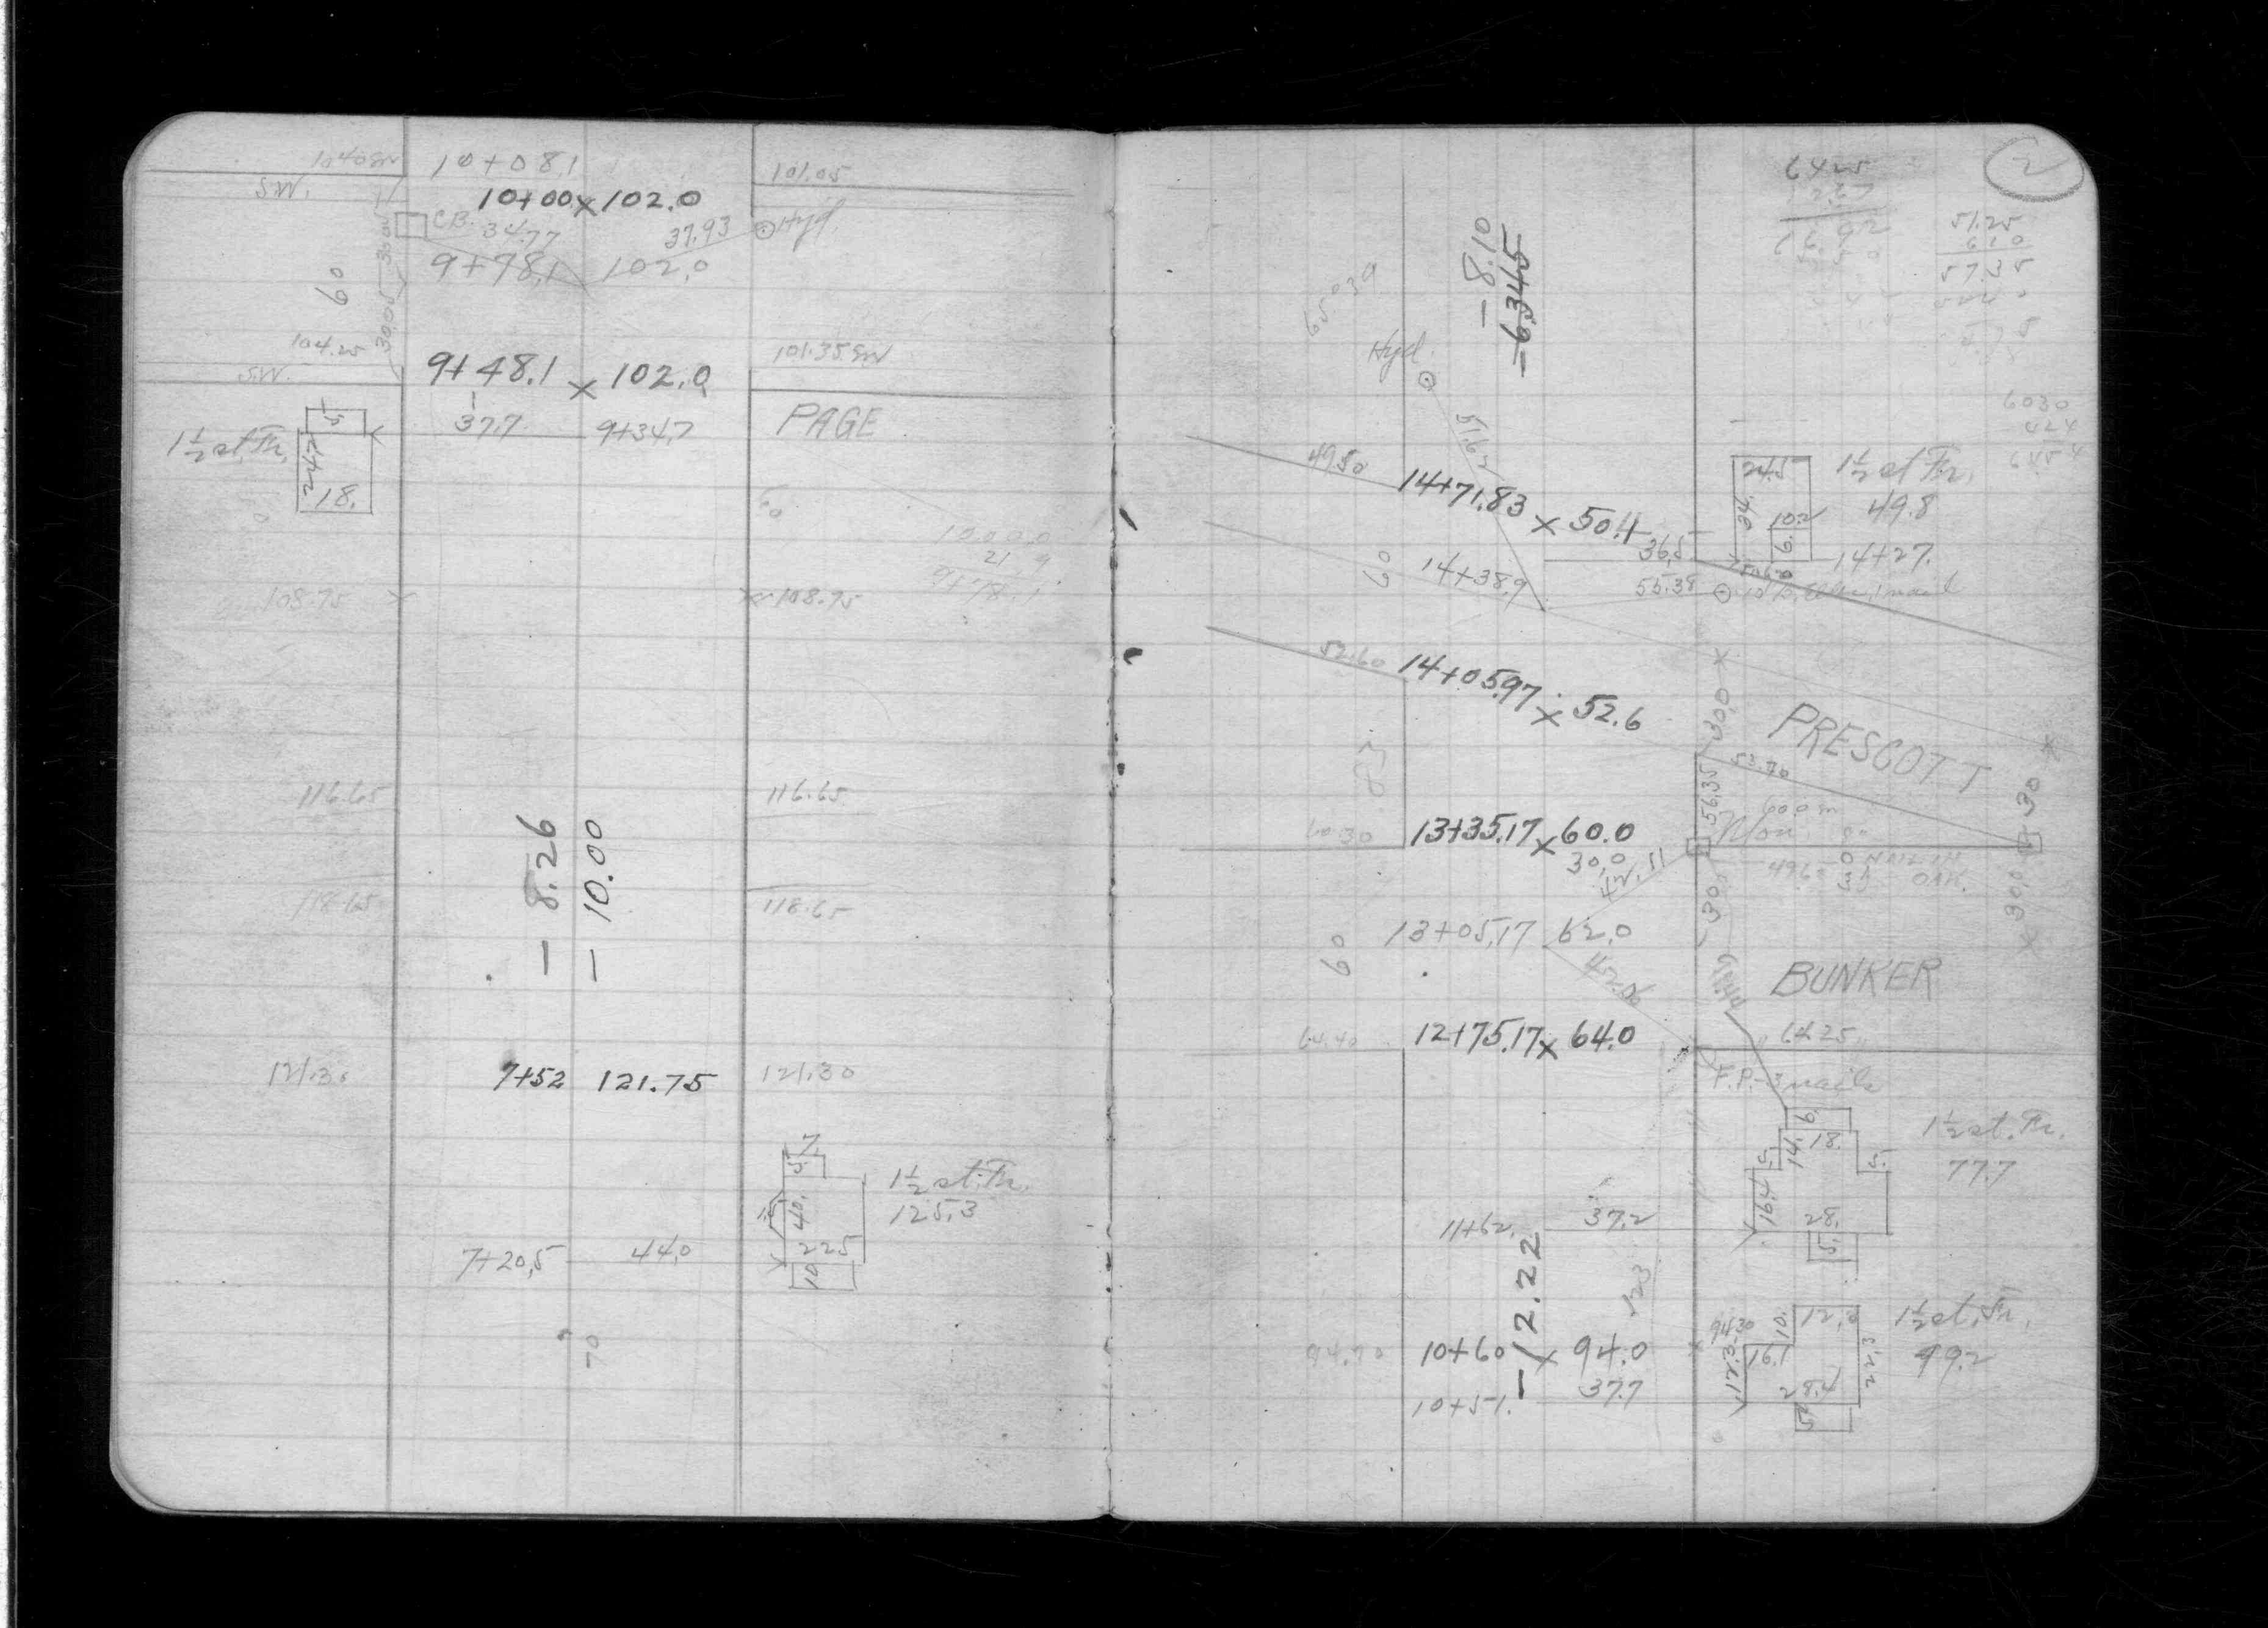 104.0 SW
10+08.1
101.05
S.W.
10+00 x 102.0
C.B.
34.77
37.93
Hyd.
9+78.1
102.0
60
30.05
104.25
S.W.
9+48.1 x 102.0
101.35 SW
37.7
9+34.7
PAGE
1½ st. Fr.
5
24.2
18.
60
100 0.0
21 9
9+78.1
108.75 x
x 108.75
116.65
116.65
- 8.26
- 10.00
118.65
118.65
121.30
7+52
121.75
121.30
7.
5.
40.
22.5
10
1½ st. Fr.
125.3
7+20.5
44.0
70
2
6425
51.25
610
57.35
- 8.10
-6.345
65°39
Hyd.
51.62
6030
424
6454
49.50
14+71.83 x 50.4
24.5
34.
10.2
6.
1½ st Fr.
49.8
36.5
14+27.
60
14+38.9
55.38
52.60
14+05.97 x 52.6
30.0 x
PRESCOTT
53.70
56.35
83
30
60.30
13+35.17 x 60.0
Mon.
30.0
42.51
NAIL IN
OAK.
30.0
30.0 x
13+05.17
62.0
60
42.06
BUNKER
64.40
12+75.17 x 64.0
64.25
F.P.-3 nails
6.
18.
14.
5.
5.
16.4
28.
5.
1½ st. Fr.
77.7
11+62.
37.2
- 12.22
123
94.70
10+60 x 94.0
94.30
10.
12.0
16.1
17.3
28.4
22.3
5
1½ st. Fr.
99.2
10+51.
37.7